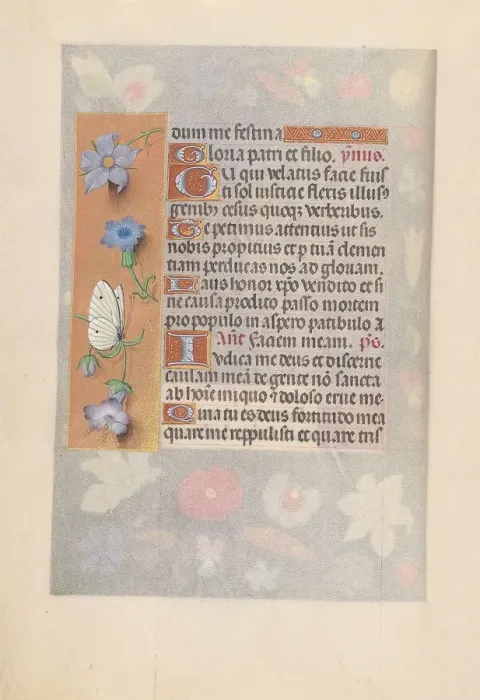 dum me festina
Gloria patri et filio. ymus.
Tu qui velatus facie fuis
ti sol iusticie flexis illusꝰ
genibꝫ cesus quoqꝫ verberibus.
Te petimus attentius ut sis
nobis propitius et ꝑ tuā clemen
tiam perducas nos ad gloriam.
Laus honor xp̄o vendito et si
ne causa prodito passo mortem
pro populo in aspero patibulo A
Añt Faciem meam. ps.
Iudica me deus et discerne
causam meā de gente nō sancta
ab hoīe iniquo ⁊ doloso erue me.
Quia tu es deus fortitudo mea
quare me reppulisti et quare tris